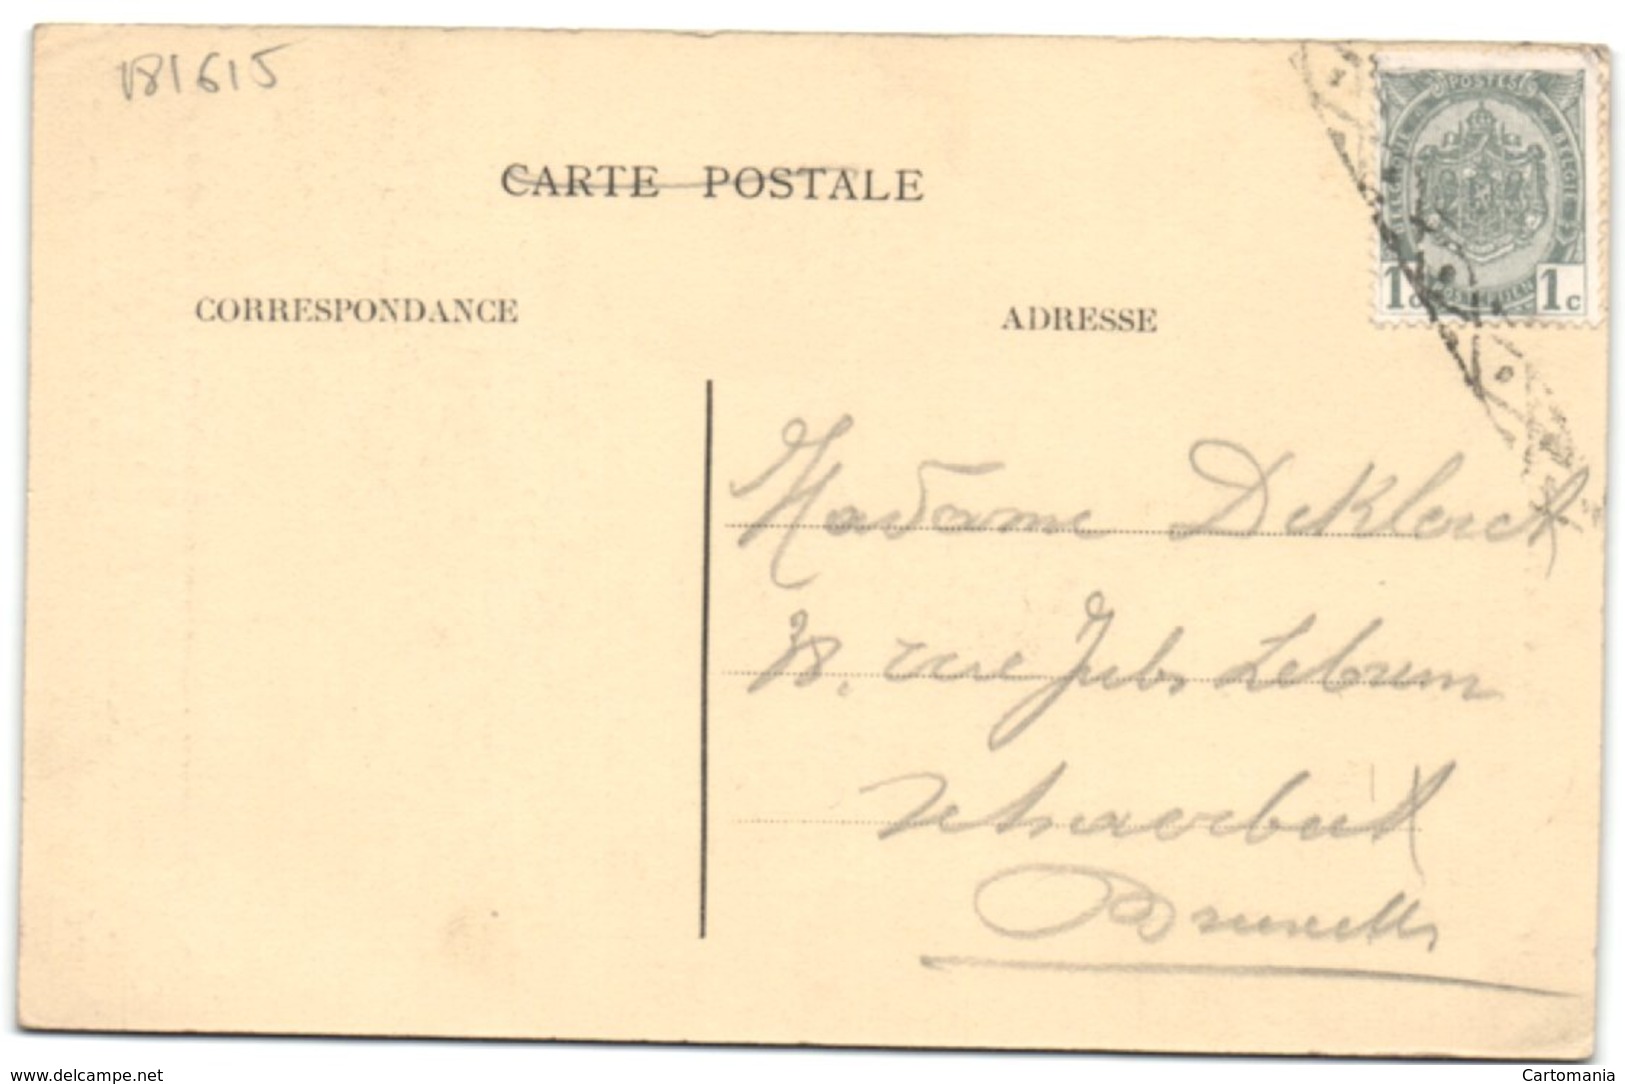 181615
CARTE POSTALE
POSTES
BELGIQUE
BELGIË
1c 1c
CORRESPONDANCE
ADRESSE
Madame DeKlerck
38. rue Jules Lebrun
Schaerbeek
Bruxelles
www.delcampe.net
Cartomania